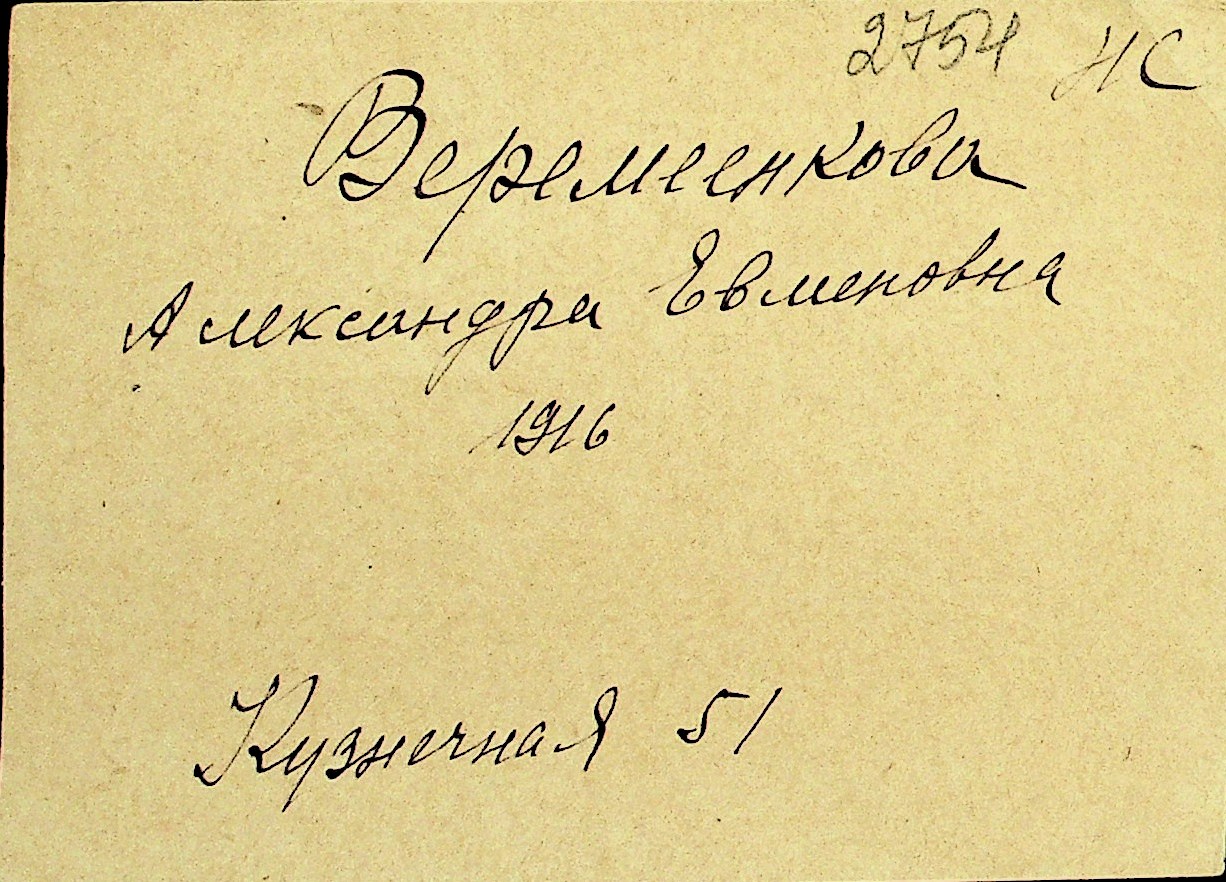 2754 НС
Веремеенкова
Александра Евменовна
1916
Кузнечная 51